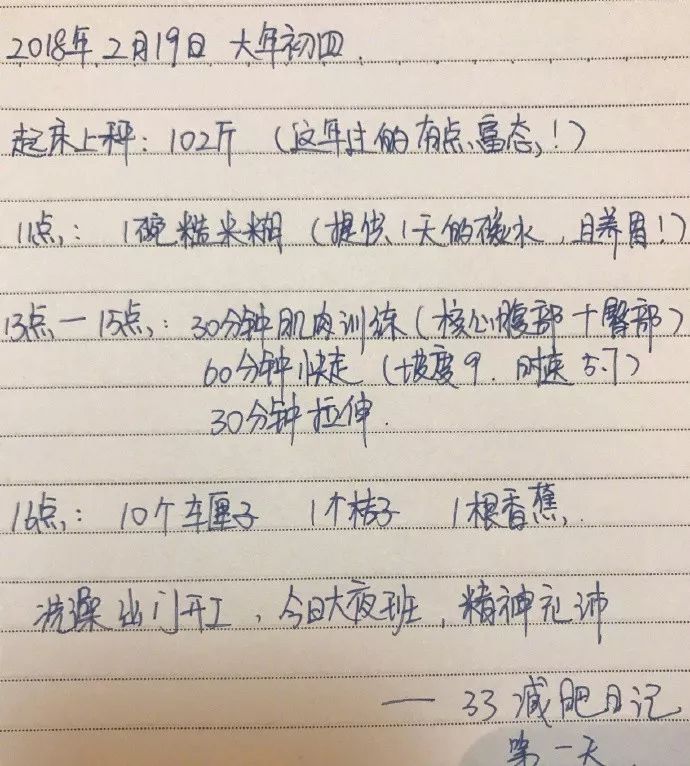 2018年2月19日 大年初四
起床上秤：102斤（这年过的有点富态！）
11点：1碗糙米糊（提供1天的碳水，且养胃！）
13点－15点：30分钟肌肉训练（核心腹部＋臀部）
60分钟快走（坡度9.时速5.7）
30分钟拉伸.
16点：10个车厘子 1个桔子 1根香蕉.
洗澡出门开工，今日大夜班，精神充沛
—— 33减肥日记
第一天